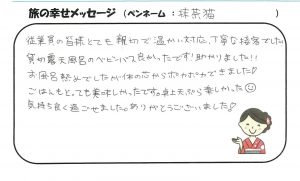 旅の幸せメッセージ (ペンネーム：抹茶猫)
従業員の皆様とても親切で温かい対応、丁寧な接客でした。
貸切露天風呂のベビーバス良かったです!助かりました!!
お風呂熱めでしたが体の芯からポカポカできました♪
ごはんもとっても美味しかったです。卓上天ぷら楽しかった☺
気持ち良く過ごせました。ありがとうございました♪